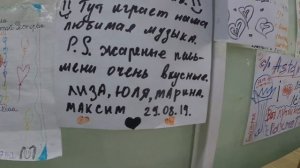 !! Тут играет наша
любимая музыка.
P.S. жареные пель-
мени очень вкусные.
ЛИЗА, ЮЛЯ, МАРИНА
МАКСИМ 29.08.19.